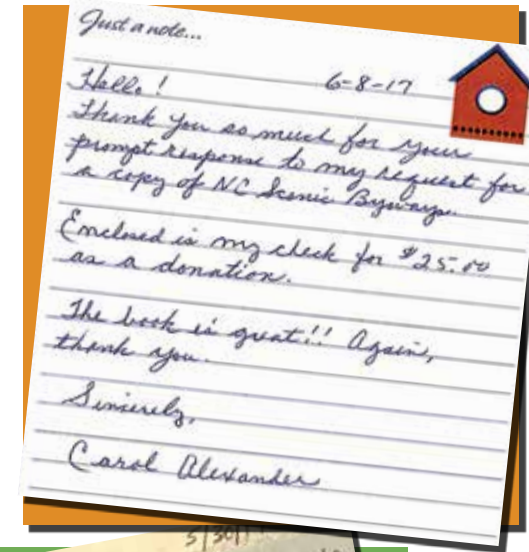 Just a note...
6-8-17
Hello!
Thank you so much for your
prompt response to my request for
a copy of NC Scenic Byways.
Enclosed is my check for $25.00
as a donation.
The book is great!! Again,
thank you.
Sincerely,
Carol Alexander